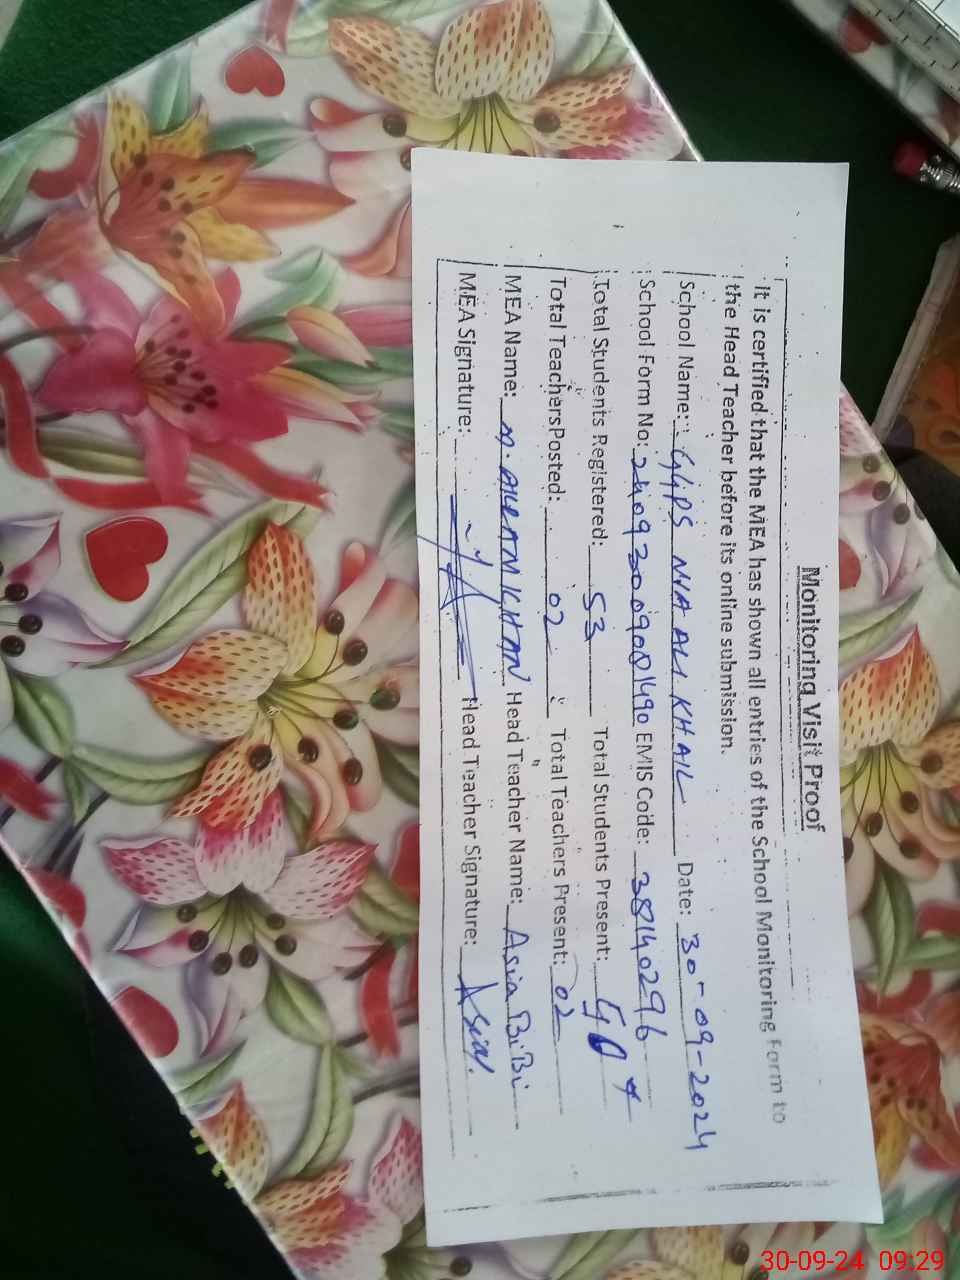 Monitoring Visit Proof
It is certified that the MEA has shown all entries of the School Monitoring Form to
the Head Teacher before its online submission.
School Name: GGPS NNA ALI KHAIL Date: 30-09-2024
School Form No: EMIS Code: 38140296
Total Students Registered: 53 Total Students Present:
Total Teachers Posted: 02 Total Teachers Present: 02
MEA Name: M. KHAN Head Teacher Name: Asia BiBi
MEA Signature: Head Teacher Signature: Asia.
30-09-24 09:29